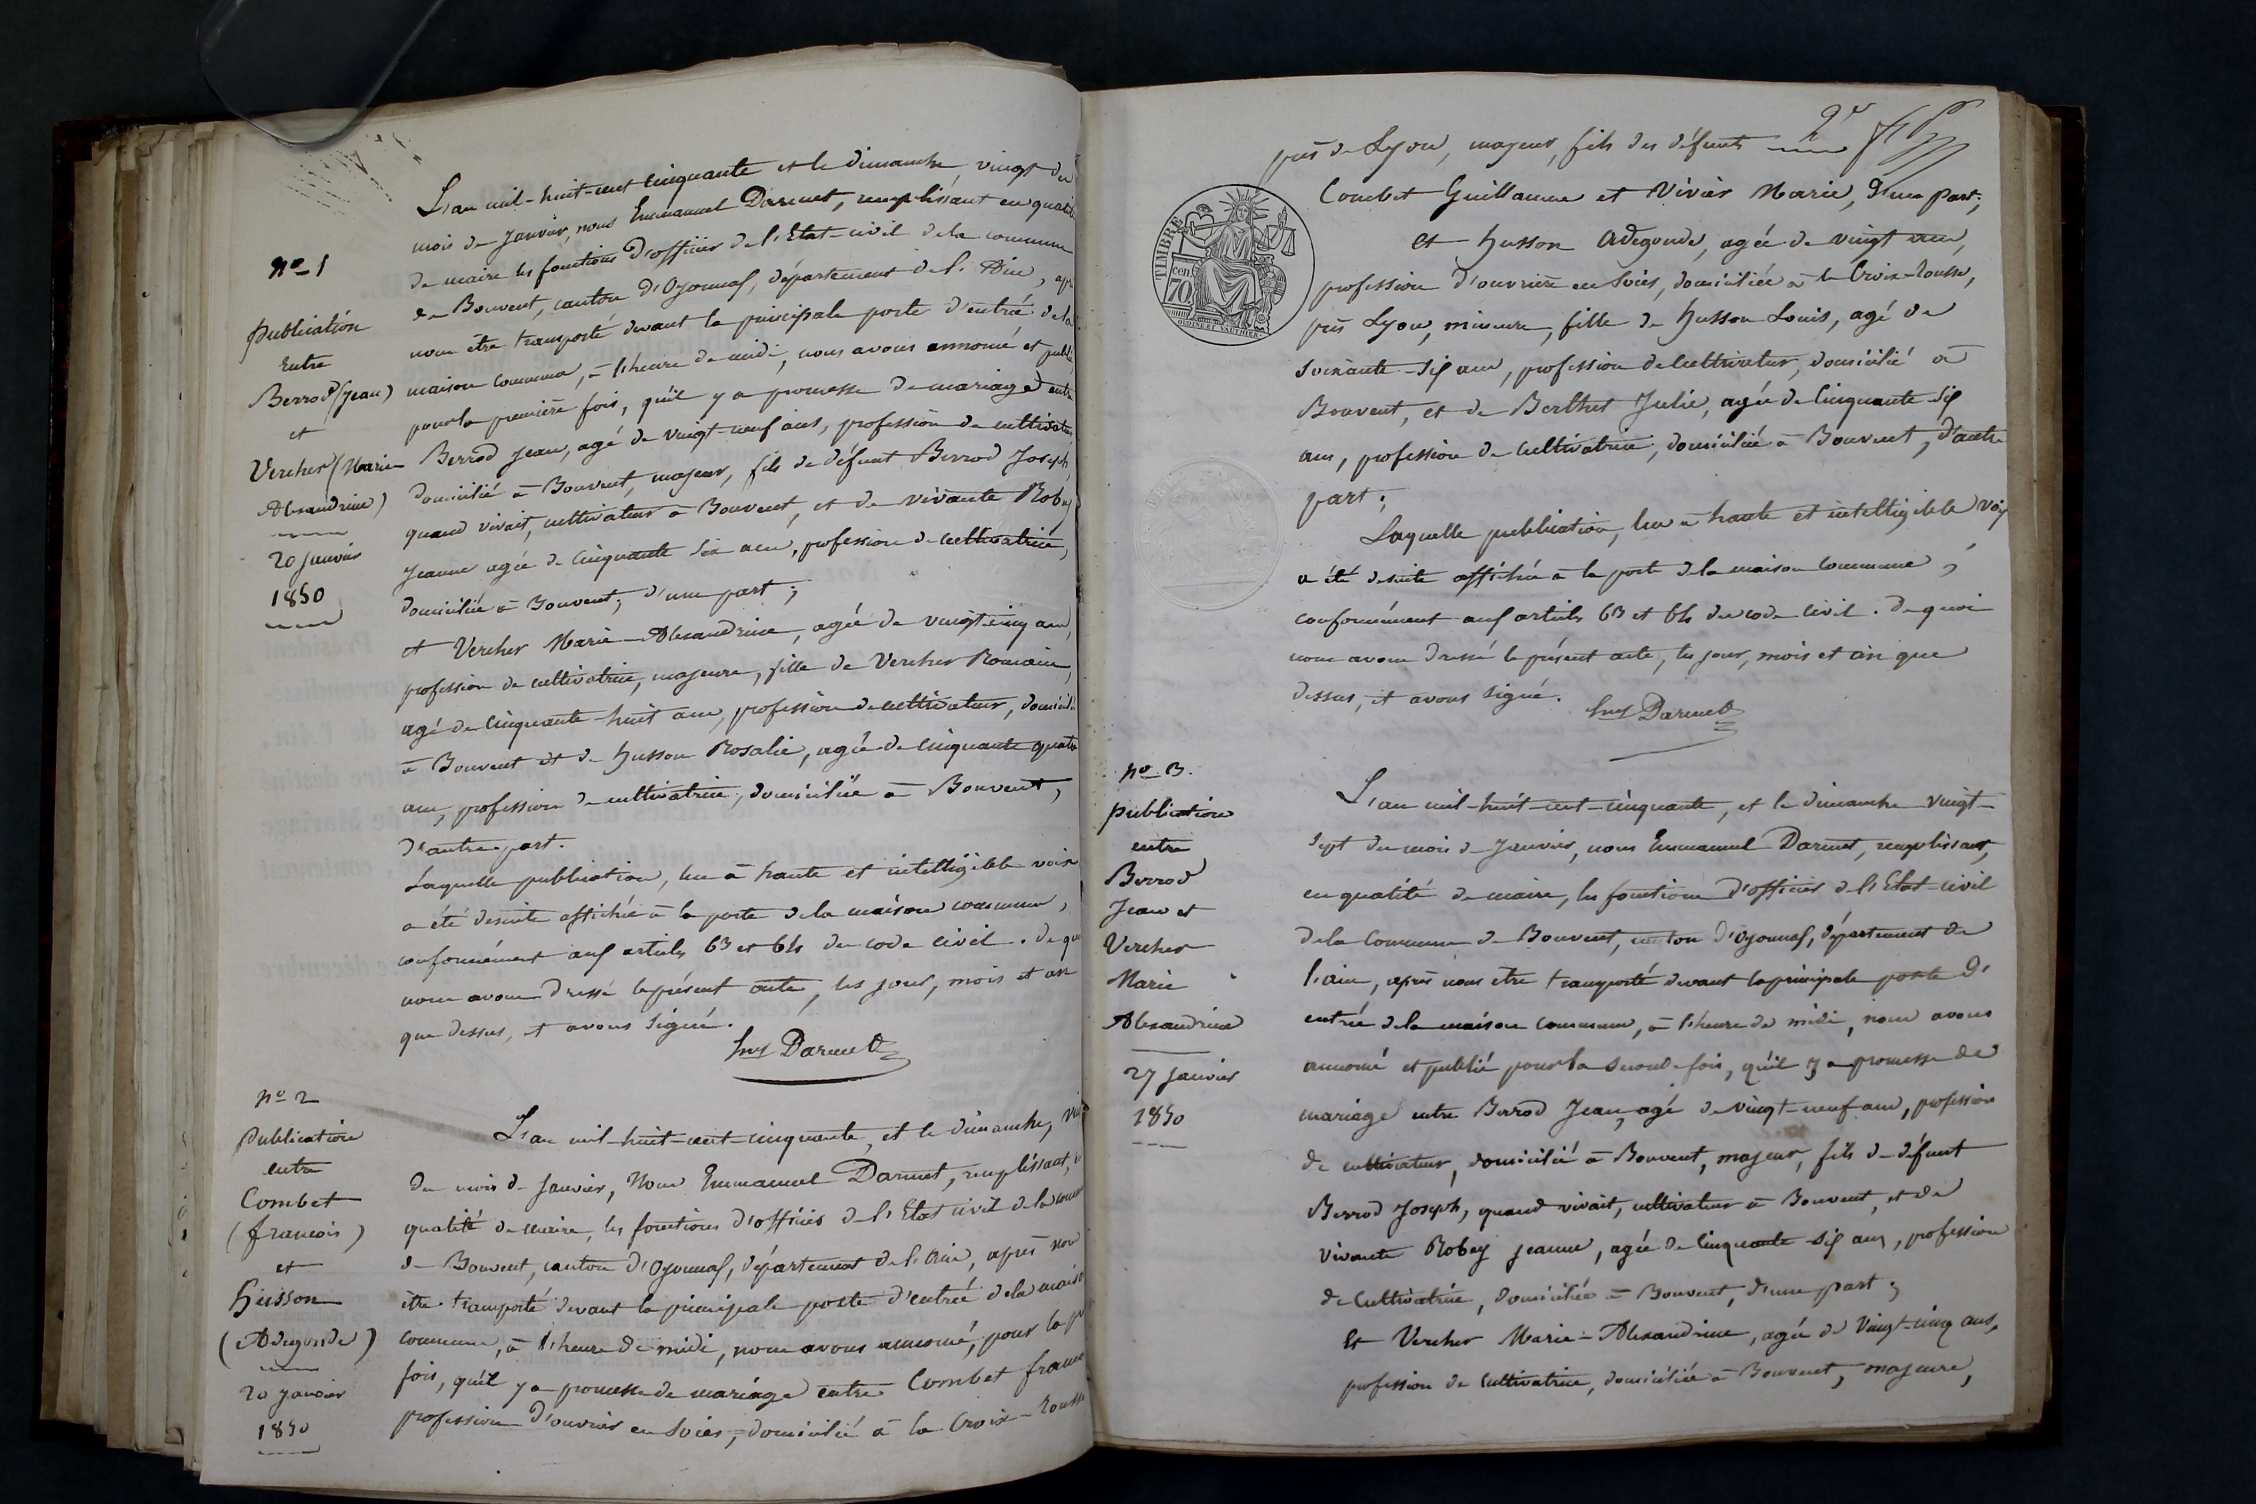 nº 1
Publication
Entre
Berrod (Jean)
et
Vercher (Marie
Alexandrine)
20 janvier
1850
L'an mil-huit-cent cinquante et le dimanche, vingt du
mois de janvier, nous Emmanuel Darmet, remplissant en qualité
de maire les fonctions d'officier de l'Etat-civil de la commune
de Bouvent, canton d'Oyonnax, département de l'Ain, apr
nous être transporté devant la principale porte d'entrée de la
maison commune, à l'heure de midi, nous avons annoncé et publié
pour la première fois, qu'il y a promesse de mariage entre
Berrod Jean, agé de vingt-neuf ans, profession de cultivateur
domicilié à Bouvent, majeur, fils de défunt Berrod Joseph,
quand vivait, cultivateur à Bouvent, et de vivante Robey
Jeanne agée de cinquante six ans, profession de cultivatrice,
domiciliée à Bouvent, d'une part;
et Vercher Marie-Alexandrine, agée de vingt cinq ans,
profession de cultivatrice, majeure, fille de Vercher Romain,
agé de cinquante-huit ans, profession de cultivateur, domicilié
à Bouvent et de Husson Rosalie, agée de cinquante quatre
ans, profession de cultivatrice, domiciliée à Bouvent,
d'autre part.
Laquelle publication, lue à haute et intelligible voix
a été desuite affichée à la porte de la maison commune,
conformément aux articles 63 et 64 du code civil. De quoi
nous avons dressé le présent acte, les jour, mois et an
que dessus, et avons signé.
Darmet
nº 2
Publication
entre
Combet
(françois)
et
Husson
(Adegonde)
20 janvier
1850
L'an mil-huit-cent-cinquante, et le dimanche, vin
du mois de Janvier, Nous Emmanuel Darmet, remplissant, en
qualité de maire, les fonctions d'officier de l'Etat civil de la commune
de Bouvent, canton d'Oyonnax, département de l'Ain, après nous
être transporté devant la principale porte d'entrée de la maison
commune, à l'heure de midi, nous avons annoncé, pour la p
fois, qu'il y a promesse de mariage entre Combet françois
profession d'ouvrier en Soies, domicilié à la Croix-Rousse
2e
près de Lyon, majeur, fils des défunts
Combet Guillaume et Vivier Marie, d'une part;
Et Husson Adegonde, agée de vingt ans,
profession d'ouvrière en Soies, domiciliée à la Croix-rousse,
près Lyon, mineure, fille de Husson Louis, agé de
Soixante-six ans, profession de Cultivateur, domicilié à
Bouvent, et de Berthet Julie, agée de Cinquante six
ans, profession de Cultivatrice, domiciliée à Bouvent, d'autre
part;
Laquelle publication, lue à haute et intelligible voix
a été desuite affichée à la porte de la maison commune,
conformément aux articles 63 et 64 du code civil. De quoi
nous avons dressé le présent acte, les jour, mois et an que
dessus, et avons signé.
Darmet
TIMBRE
cen
70
nº 3.
publication
entre
Berrod
Jean et
Vercher
Marie
Alexandrine
27 Janvier
1850
L'an mil-huit-cent-cinquante, et le dimanche vingt-
sept du mois de Janvier, nous Emmanuel Darmet, remplissant,
en qualité de maire, les fonctions d'officier de l'Etat-civil
de la Commune de Bouvent, canton d'Oyonnax, département de
l'ain, après nous etre transporté devant la principale porte d'
entrée de la maison commune, à l'heure de midi, nous avons
annoncé et publié pour la seconde fois, qu'il y a promesse de
mariage entre Berrod Jean, agé de vingt-neuf ans, profession
de cultivateur, domicilié à Bouvent, majeur, fils de défunt
Berrod Joseph, quand vivait, cultivateur à Bouvent, et de
vivante Robey Jeanne, agée de cinquante six ans, profession
de Cultivatrice, domiciliée à Bouvent, d'une part;
Et Vercher Marie-Alexandrine, agée de Vingt-cinq ans,
profession de Cultivatrice, domiciliée à Bouvent, majeure,